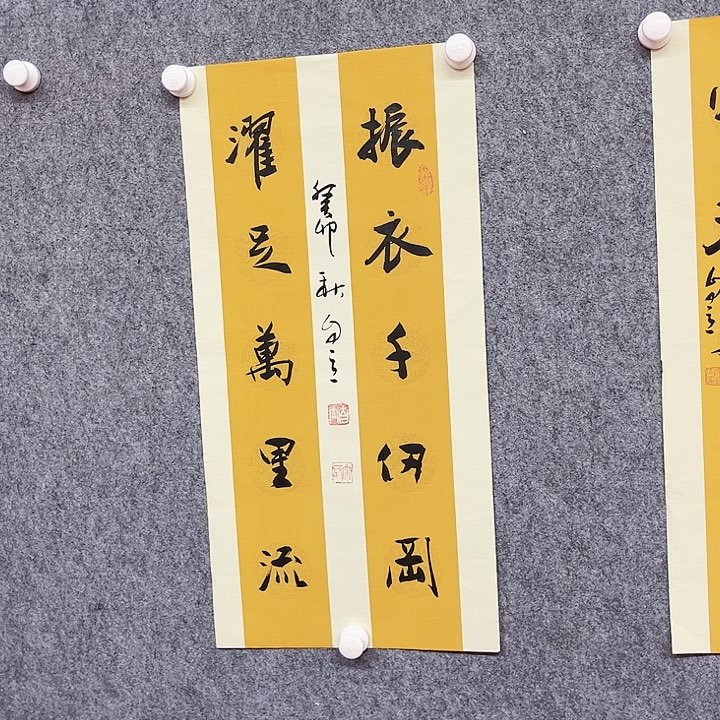 振衣千仞岡
濯足萬里流
癸卯秋